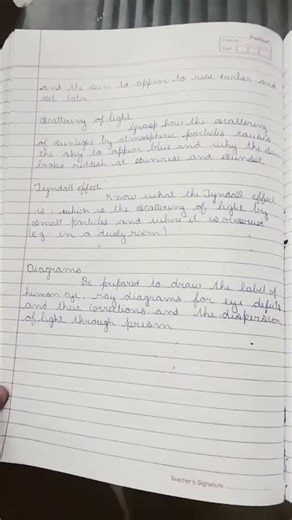 and the sun to appear to rise earlier and
set later
Scattering of light
Grasp how the scattering
of sunlight by atmospheric particles causes
the sky to appear blue and why the sun
looks reddish at sunrise and sunset
Tyndall effect
Know what the Tyndall effect
is which is the scattering of light by
small particles and where it is observed
(eg in a dusty room)
Diagrams
Be prepared to draw the label of
human eye, ray diagrams for eye defects
and their corrections and the dispersion
of light through prism
Teacher's Signature